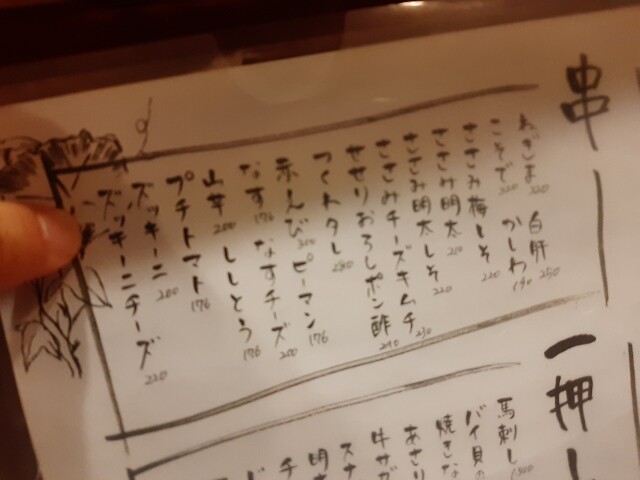 串
ねぎま 220 白肝 250
こそで 220 かしわ 190
ささみ梅しそ 220
ささみ明太 210
ささみ明太しそ 220
ささみチーズキムチ 230
せせりおろしポン酢 240
つくねタレ 280
赤えび 300 ピーマン 176
なす 176 なすチーズ 200
山芋 200 ししとう 176
プチトマト 176
ズッキーニ 200
ズッキーニチーズ 220
一押し
馬刺し
バイ貝の
焼きな
あさり
牛サガ
スナ
明
チ